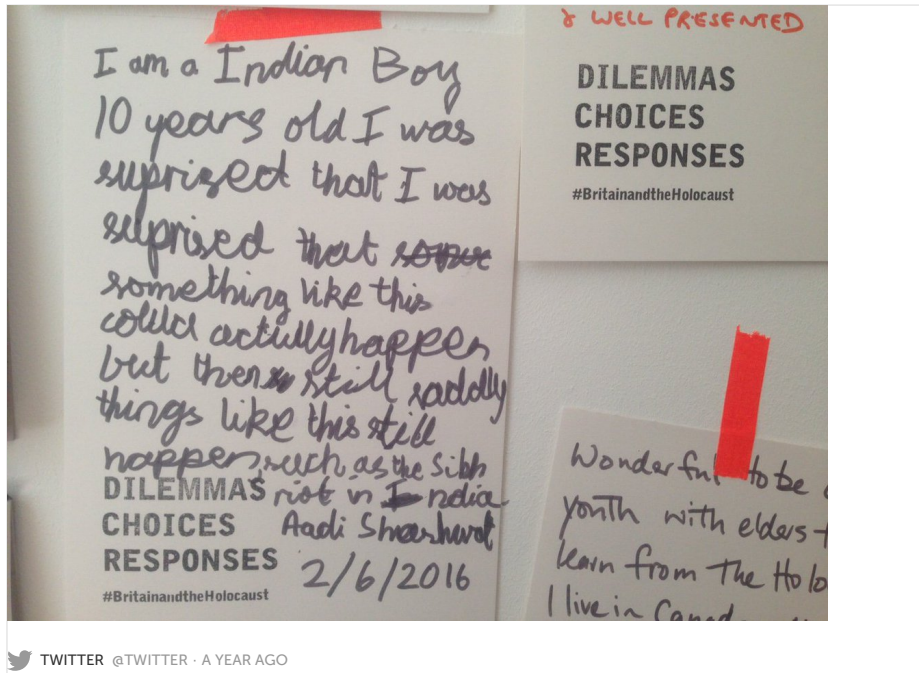 I am a Indian Boy
10 years old I was
suprized that I was
suprised that
something like this
could actully happen
but then still saddly
things like this still
happen such as the Sikh
riot in India
Aadi
2/6/2016
DILEMMAS
CHOICES
RESPONSES
#BritainandtheHolocaust
& WELL PRESENTED
DILEMMAS
CHOICES
RESPONSES
#BritainandtheHolocaust
Wonderful to be
youth with elders
learn from The Holo
I live in Canad
TWITTER @TWITTER · A YEAR AGO